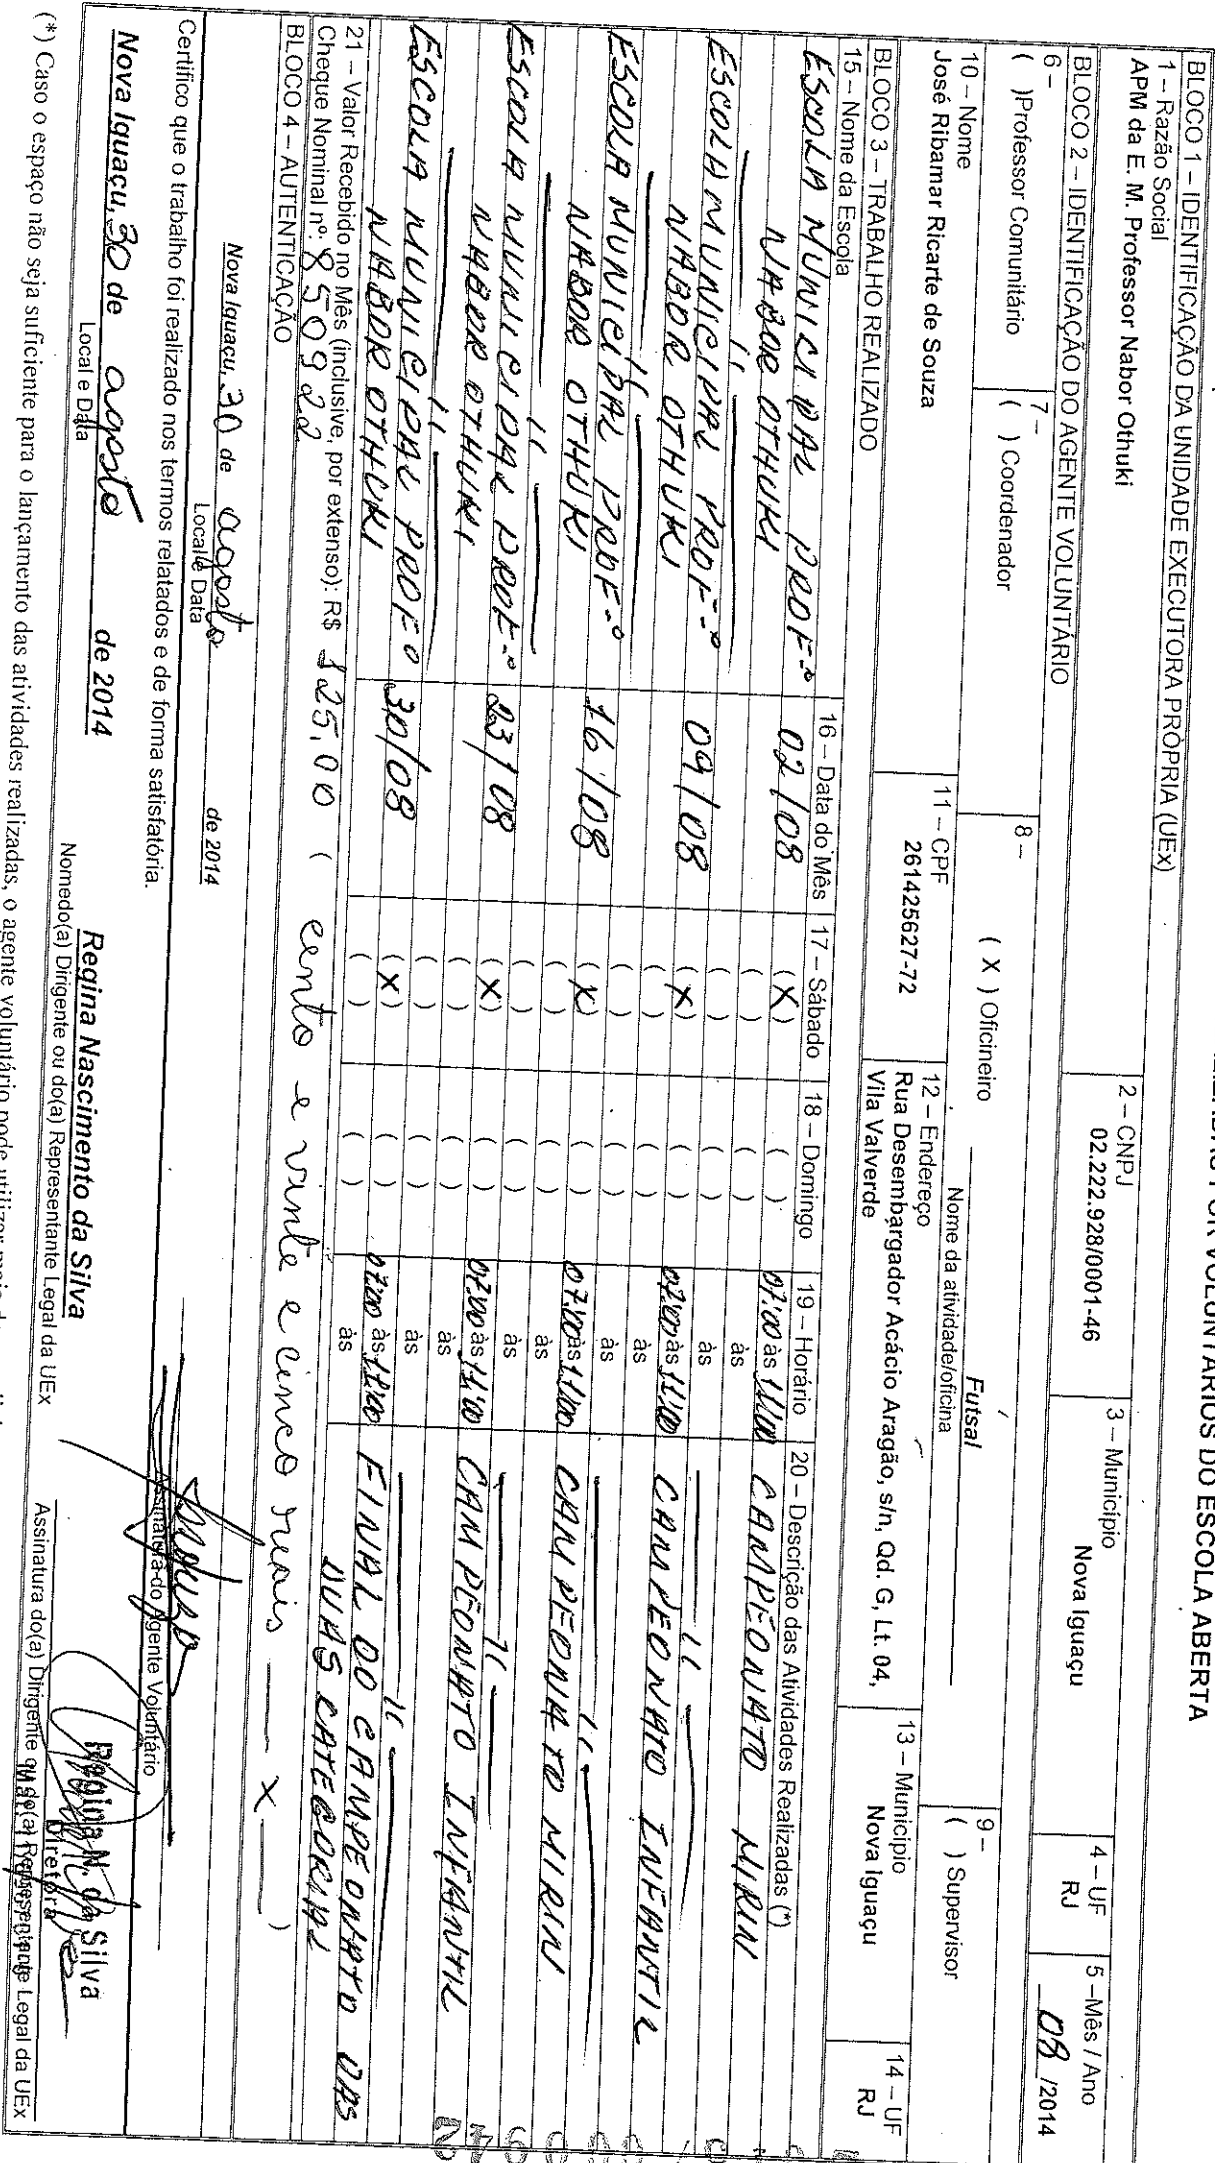 VOLUNTÁRIOS DO ESCOLA ABERTA
BLOCO 1 – IDENTIFICAÇÃO DA UNIDADE EXECUTORA PRÓPRIA (UEx)
1 – Razão Social
APM da E. M. Professor Nabor Othuki
2 – CNPJ
02.222.928/0001-46
3 – Município
Nova Iguaçu
4 – UF
RJ
5 –Mês / Ano
08 /2014
BLOCO 2 – IDENTIFICAÇÃO DO AGENTE VOLUNTÁRIO
6 –
( )Professor Comunitário
7 –
( ) Coordenador
8 –
( X ) Oficineiro
Futsal
Nome da atividade/oficina
9 –
( ) Supervisor
10 – Nome
José Ribamar Ricarte de Souza
11 – CPF
261425627-72
12 – Endereço
Rua Desembargador Acácio Aragão, s/n, Qd. G, Lt. 04,
Vila Valverde
13 – Município
Nova Iguaçu
14 – UF
RJ
BLOCO 3 – TRABALHO REALIZADO
15 – Nome da Escola 16 – Data do Mês 17 – Sábado 18 – Domingo 19 – Horário 20 – Descrição das Atividades Realizadas (*)
ESCOLA MUNICIPAL PROFº 02/08 (X) ( ) 07:00 às 11:00 CAMPEONATO MIRIN
NABOR OTHUKI ( ) ( ) às
— 11 — ( ) ( ) às — 11 —
ESCOLA MUNICIPAL PROFº 09/08 (X) ( ) 07:00 às 11:00 CAMPEONATO INFANTIL
NABOR OTHUKI ( ) ( ) às
— 11 — ( ) ( ) às — 11 —
ESCOLA MUNICIPAL PROFº 16/08 (X) ( ) 07:00 às 11:00 CAMPEONATO MIRIN
NABOR OTHUKI ( ) ( ) às
— 11 — ( ) ( ) às — 11 —
ESCOLA MUNICIPAL PROFº 23/08 (X) ( ) 07:00 às 11:00 CAMPEONATO INFANTIL
NABOR OTHUKI ( ) ( ) às
— 11 — ( ) ( ) às — 11 —
ESCOLA MUNICIPAL PROFº 30/08 (X) ( ) 07:00 às 11:00 FINAL DO CAMPEONATO DAS
NABOR OTHUKI ( ) ( ) às DUAS CATEGORIAS
21 – Valor Recebido no Mês (inclusive, por extenso): R$ 125,00 ( cento e vinte e cinco reais — x — )
Cheque Nominal nº: 850922
BLOCO 4 – AUTENTICAÇÃO
Nova Iguaçu, 30 de agosto de 2014
Local e Data
Assinatura do Agente Voluntário
Certifico que o trabalho foi realizado nos termos relatados e de forma satisfatória.
Nova Iguaçu, 30 de agosto de 2014
Local e Data
Regina Nascimento da Silva
Nomedo(a) Dirigente ou do(a) Representante Legal da UEx
Regina N. da Silva
Diretora
Assinatura do(a) Dirigente ou do(a) Representante Legal da UEx
(*) Caso o espaço não seja suficiente para o lançamento das atividades realizadas, o agente voluntário pode utilizar mais